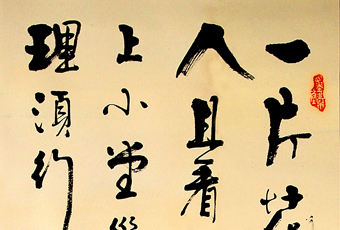 一片花
人且看
上小堂
理須行